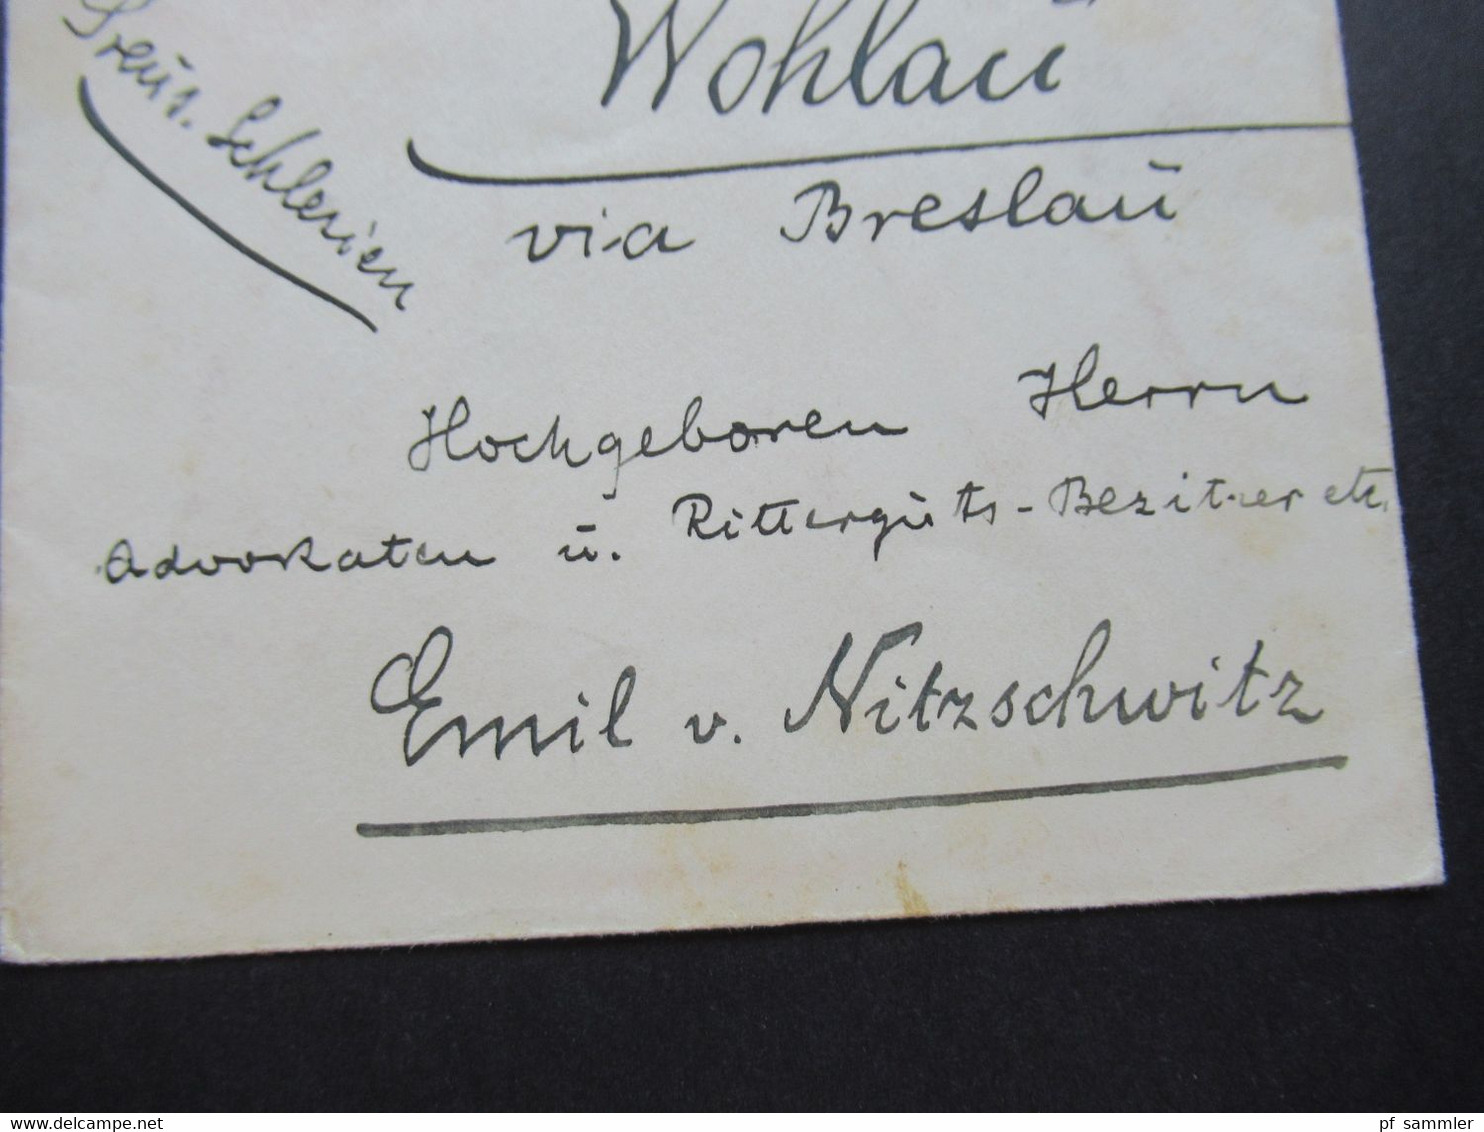 Wohlaū
Preūs. Schlesien
via Breslaū
Hochgeboren Herrn
Advokaten ū. Rittergūts-Bezitzer etc.
Emil v. Nitzschwitz
www.delcampe.net
pf_sammler